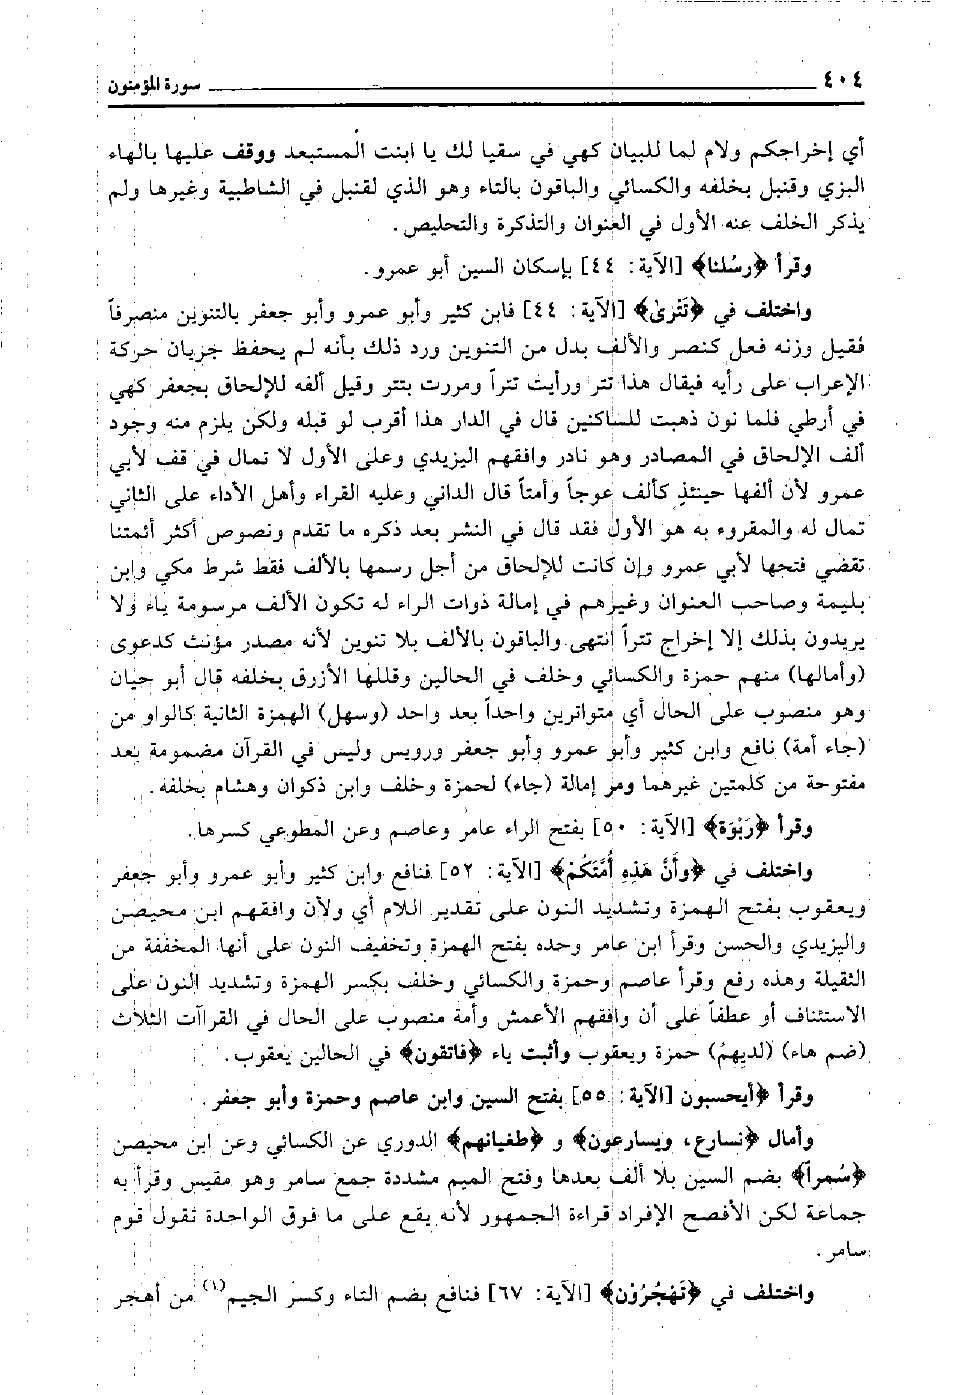 ٤٠٤ سورة المؤمنون
أي إخراجكم ولام لما للبيان كهي في سقيا لك يا ابنت المستبعد ووقف عليها بالهاء
البزي وقنبل بخلفه والكسائي والباقون بالتاء وهو الذي لقنبل في الشاطبية وغيرها ولم
يذكر الخلف عنه الأول في العنوان والتذكرة والتخليص.
وقرأ ﴿رسْلنا﴾ [الآية: ٤٤] بإسكان السين أبو عمرو.
واختلف في ﴿تَتْرىٰ﴾ [الآية: ٤٤] فابن كثير وأبو عمرو وأبو جعفر بالتنوين منصرفاً
فقيل وزنه فعل كنصر والألف بدل من التنوين ورد ذلك بأنه لم يحفظ جزيان حركة
الإعراب على رأيه فيقال هذا تتر ورأيت تتراً ومررت بتتر وقيل ألفه للإلحاق بجعفر كهي
في أرطي فلما نون ذهبت للساكنين قال في الدار هذا أقرب لو قبله ولكن يلزم منه وجود
ألف الإلحاق في المصادر وهو نادر وافقهم اليزيدي وعلى الأول لا تمال في قف لأبي
عمرو لأن ألفها حينئذ كألف عوجاً وأمتاً قال الداني وعليه القراء وأهل الأداء على الثاني
تمال له والمقروء به هو الأول فقد قال في النشر بعد ذكره ما تقدم ونصوص أكثر أئمتنا
تقضي فتحها لأبي عمرو وإن كانت للإلحاق من أجل رسمها بالألف فقط شرط مكي وابن
بليمة وصاحب العنوان وغيرهم في إمالة ذوات الراء له تكون الألف مرسومة ياء ولا
يريدون بذلك إلا إخراج تتراً انتهى والباقون بالألف بلا تنوين لأنه مصدر مؤنث كدعوى
(وأمالها) منهم حمزة والكسائي وخلف في الحالين وقللها الأزرق بخلفه قال أبو حيان
وهو منصوب على الحال أي متواترين واحداً بعد واحد (وسهل) الهمزة الثانية كالواو من
(جاء أمة) نافع وابن كثير وأبو عمرو وأبو جعفر ورويس وليس في القرآن مضمومة بعد
مفتوحة من كلمتين غيرهما ومر إمالة (جاء) لحمزة وخلف وابن ذكوان وهشام بخلفه.
وقرأ ﴿رَبْوَة﴾ [الآية: ٥٠] بفتح الراء عامر وعاصم وعن المطوعي كسرها.
واختلف في ﴿وأَنَّ هَذِهِ أُمَّتُكُمْ﴾ [الآية: ٥٢] فنافع وابن كثير وأبو عمرو وأبو جعفر
ويعقوب بفتح الهمزة وتشديد النون على تقدير اللام أي ولأن وافقهم ابن محيصن
واليزيدي والحسن وقرأ ابن عامر وحده بفتح الهمزة وتخفيف النون على أنها المخففة من
الثقيلة وهذه رفع وقرأ عاصم وحمزة والكسائي وخلف بكسر الهمزة وتشديد النون على
الاستئناف أو عطفاً على أن وافقهم الأعمش وأمة منصوب على الحال في القراآت الثلاث
(ضم هاء) (لديهمُ) حمزة ويعقوب وأثبت ياء ﴿فاتقون﴾ في الحالين يعقوب.
وقرأ ﴿أيحسبون [الآية: ٥٥] بفتح السين وابن عاصم وحمزة وأبو جعفر.
وأمال ﴿نسارع، ويسارعون﴾ و ﴿طغيانهم﴾ الدوري عن الكسائي وعن ابن محيصن
﴿سُمراً﴾ بضم السين بلا ألف بعدها وفتح الميم مشددة جمع سامر وهو مقيس وقرأ به
جماعة لكن الأفصح الإفراد قراءة الجمهور لأنه يقع على ما فوق الواحدة تقول قوم
سامر.
واختلف في ﴿تَهْجُرُون﴾ [الآية: ٦٧] فنافع بضم التاء وكسر الجيم(١) من أهجر